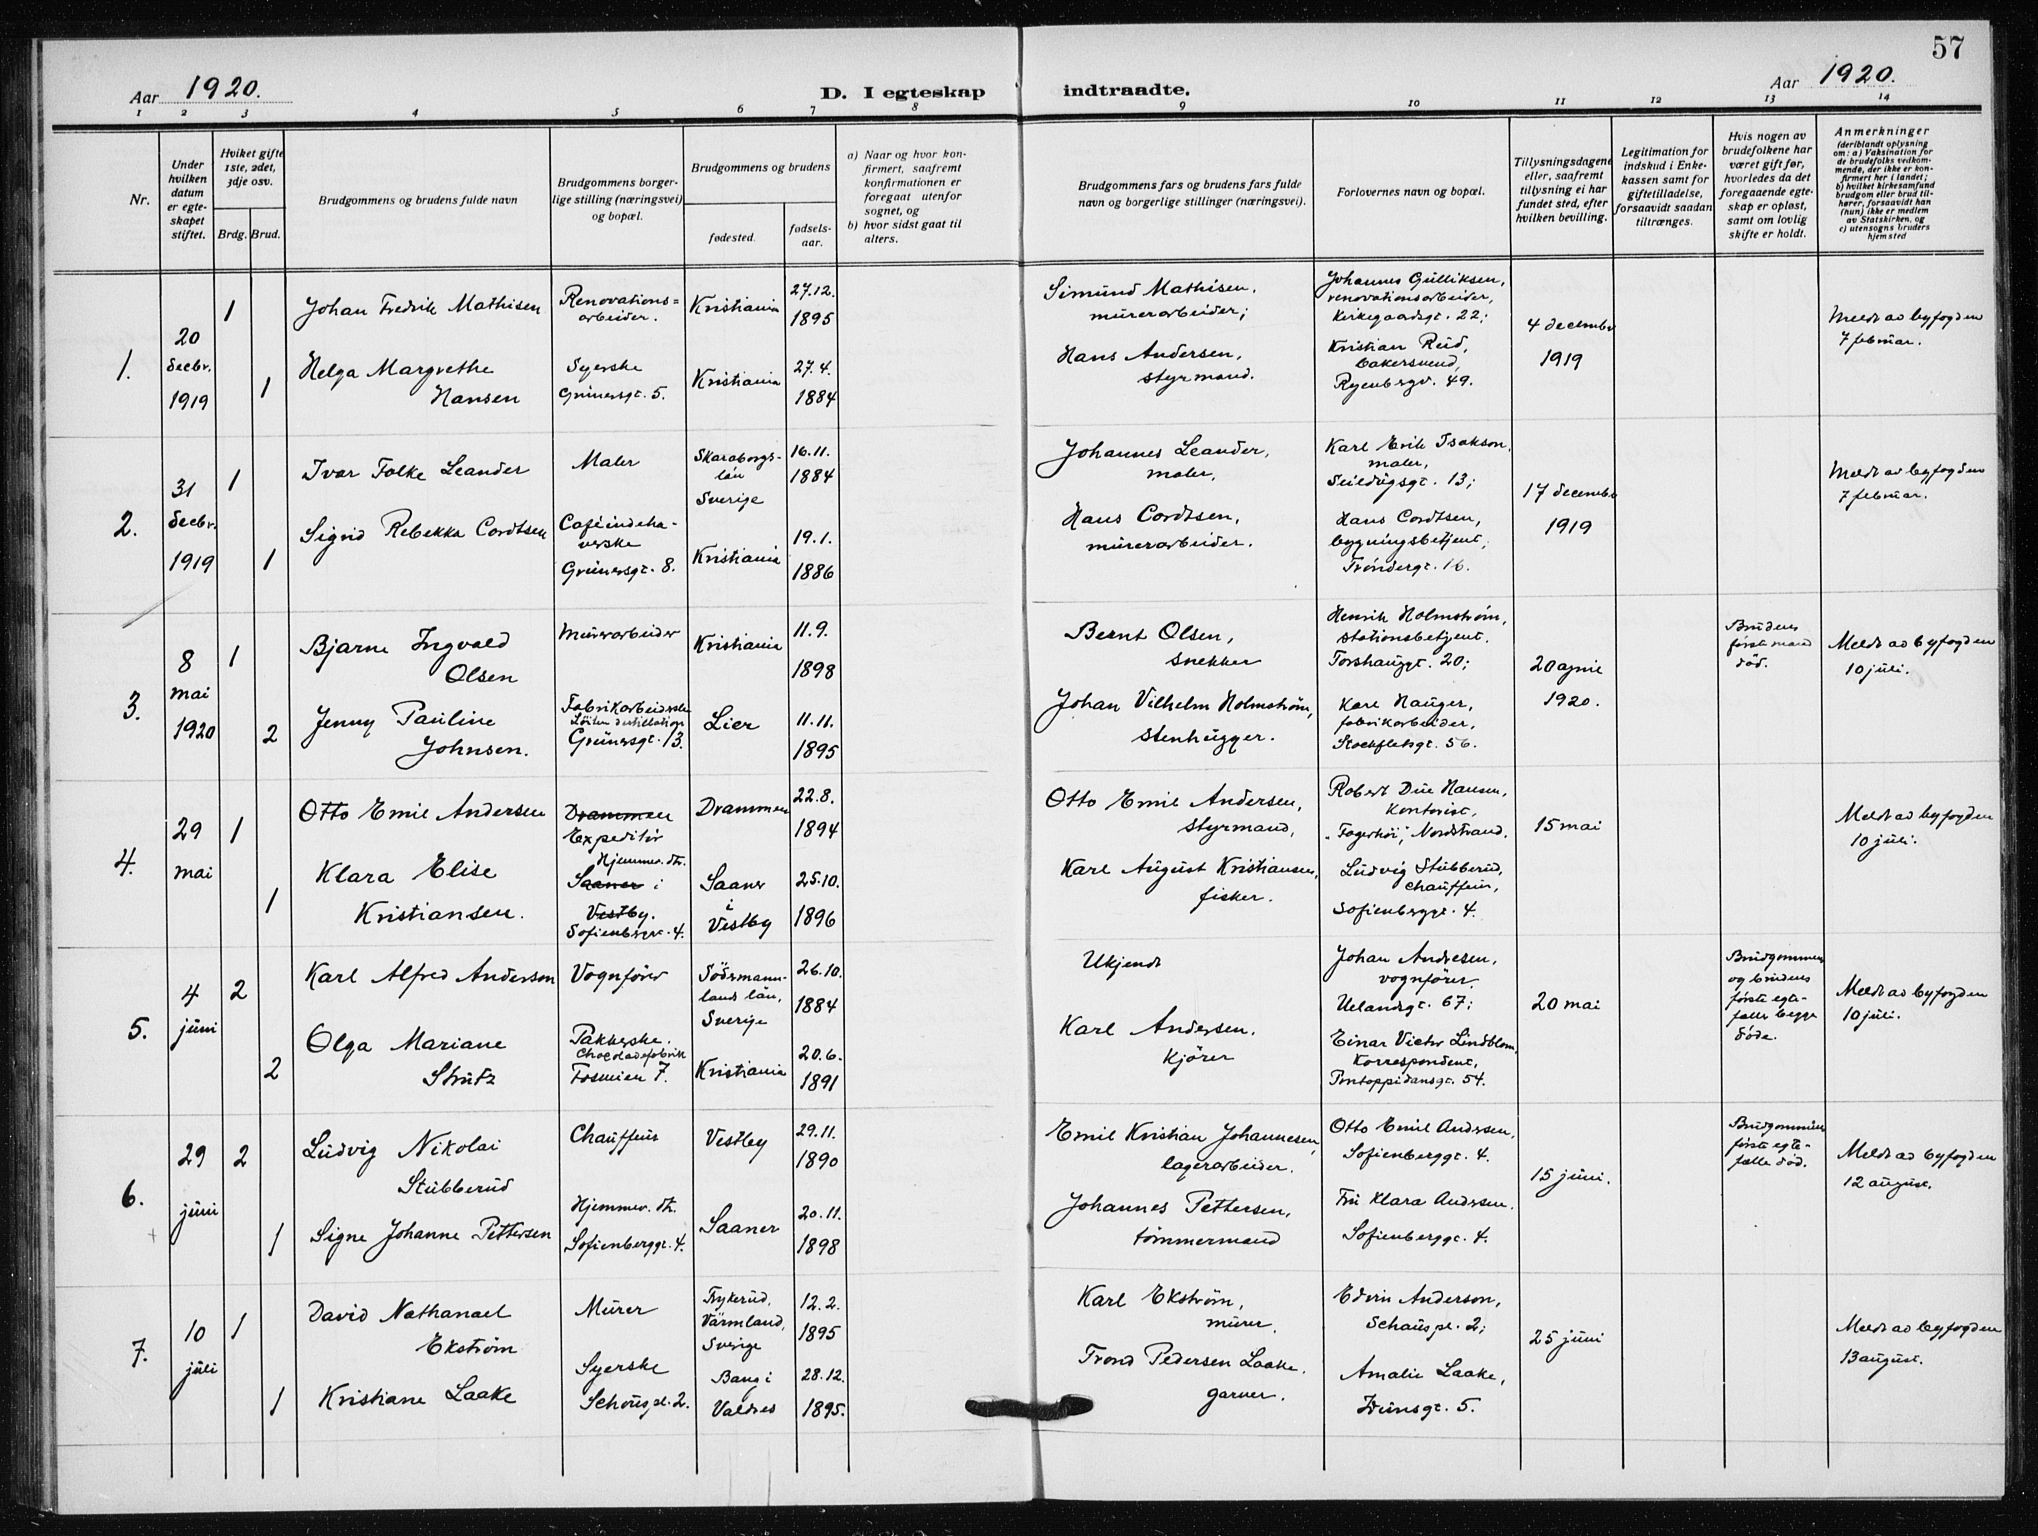 57
Aar 1920.
D. I egteskap indtraadte.
Aar 1920.
1 2 3 4 5 6 7 8 9 10 11 12 13 14
Nr.
Under
hvilken
datum
er egte-
skapet
stiftet.
Hviket gifte
1ste, 2det,
3dje osv.
Brdg. Brud.
Brudgommens og brudens fulde navn
Brudgommens borger-
lige stilling (næringsvei)
og bopæl.
Brudgommens og brudens
fødested.
fødsels-
aar.
a) Naar og hvor kon-
firmert, saafremt
konfirmationen er
foregaat utenfor
sognet, og
b) hvor sidst gaat til
alters.
Brudgommens fars og brudens fars fulde
navn og borgerlige stillinger (næringsvei).
Forlovernes navn og bopæl.
Tillysningsdagene
eller, saafremt
tillysning ei har
fundet sted, efter
hvilken bevilling.
Legitimation for
indskud i Enke-
kassen samt for
giftetilladelse,
forsaavidt saadan
tiltrænges.
Hvis nogen av
brudefolkene har
været gift før,
hvorledes da det
foregaaende egte-
skap er opløst,
samt om lovlig
skifte er holdt.
Anmerkninger
(deriblandt oplysning
om: a) Vaksination for
de brudefolks vedkom-
mende, der ikke er kon-
firmert her i landet;
b) hvilket kirkesamfund
brudgom eller brud til-
hører, forsaavidt han
(hun) ikke er medlem
av Statskirken, og
c) utensogns bruders
hjemsted
1.
20
decbr.
1919
1
1
Johan Fredrik Mathisen
Helga Margrethe
Hansen
Renovations=
arbeider.
Syerske
Grünersgt. 5.
Kristiania
Kristiania
27.12.
1895
27.4.
1884
Simund Mathisen,
murerarbeider;
Hans Andersen,
styrmand.
Johannes Gulliksen,
renovationsarbeider,
Kirkegaardsgt. 22;
Kristian Reid,
bakersvend,
Ryenbergv. 49.
4 decembr
1919
Meldt av byfogden
7 februar.
2.
31
decbr.
1919
1
1
Ivar Folke Leander
Sigrid Rebekka Cordtsen
Maler
Caféindeha-
verske
Grünersgt. 8.
Skaraborgs-
län
Sverige
Kristiania
16.11.
1884
19.1.
1886
Johannes Leander,
maler,
Hans Cordtsen,
murerarbeider.
Karl Erik Isakson,
maler,
Seildugsgt. 13;
Hans Cordtsen,
bygningsbetjent,
Tröndergt. 16.
17 decembr
1919
Meldt av byfogden
7 februar.
3.
8
mai
1920
1
2
Bjarne Ingvald
Olsen
Jenny Pauline
Johnsen.
Murerarbeider
Fabrikarbeiderske
Löiten destillation
Grünersgt. 13.
Kristiania
Lier
11.9.
1898
11.11.
1895
Bernt Olsen,
snekker
Johan Vilhelm Holmström,
stenhugger.
Henrik Holmström,
stationsbetjent,
Torshauggt. 20;
Kare Hauger,
fabrikarbeider,
Stockflethsgt. 56.
20 april
1920.
Brudens
første mand
död.
Meldt av byfogden
10 juli.
4.
29
mai
1
1
Otto Emil Andersen
Klara Elise
Kristiansen.
Drammen
Expeditör
Hjemmev. dtr.
Saaner i
Vestby.
Sofienberggt. 4.
Drammen
Saaner
i
Vestby
22.8.
1894
25.10.
1896
Otto Emil Andersen,
styrmand,
Karl August Kristiansen,
fisker.
Robert Due Hansen,
Kontorist,
"Fagerhöi", Nordstrand.
Ludvig Stubberud,
Chauffeur,
Sofienberggt. 4.
15 mai
Meldt av byfogden
10 juli.
5.
4
juni
2
2
Karl Alfred Anderson
Olga Mariane
Strutz
Vognfører
Pakkerske.
Chocoladefabrik
Fosveien 7.
Södermann-
lands län,
Sverige
Kristiania
26.10.
1884
20.6.
1891
Ukjendt
Karl Andersen.
Kjörer
Johan Andresen,
vognförer,
Uelandsgt. 67;
Einar Victor Lindblom,
Korrespondent,
Pontoppidansgt. 54.
20 mai
Brudgommens
og brudens
første egte-
fæller begge
döde.
Meldt av byfogden
10 juli.
6.
29
juni
2
1
Ludvig Nikolai
Stubberud
Signe Johanne Pettersen
Chauffeur
Hjemmev. dtr.
Sofienberggt. 4.
Vestby
Saaner
29.11.
1890
20.11.
1898
Emil Kristian Johannesen,
lagerarbeider.
Johannes Pettersen,
tömmermand
Otto Emil Andersen,
Sofienberggt. 4.
Fru Klara Andersen.
Sofienberggt. 4.
15 juni.
Brudgommens
første egte-
fælle död.
Meldt av byfogden
12 august.
7.
10
juli
1
1
David Nathanael
Ekström
Kristiane Laake
Murer
Syerske
Schouspl. 2.
Frykerud,
Värmland,
Sverige
Bang i
Valdres
12.2.
1895
28.12.
1895.
Karl Ekström,
murer.
Trond Pedersen Laake.
garver.
Edvin Anderson,
Schouspl. 2;
Amalie Laake,
Idunsgt. 5.
25 juni
Meldt av byfogden
13 august.